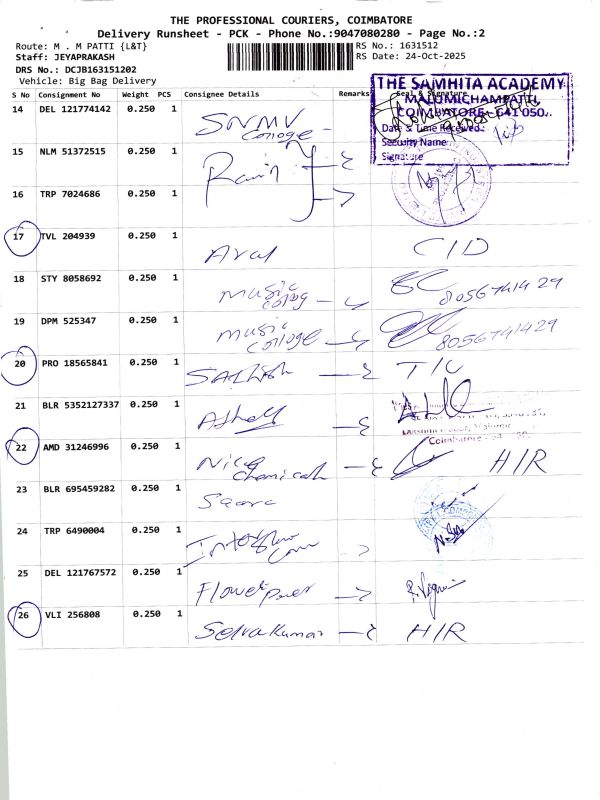 THE PROFESSIONAL COURIERS, COIMBATORE
Delivery Runsheet - PCK - Phone No.:9047080280 - Page No.:2
Route: M . M PATTI {L&T}
RS No.: 1631512
Staff: JEYAPRAKASH
RS Date: 24-Oct-2025
DRS No.: DCJB163151202
Vehicle: Big Bag Delivery
S No Consignment No Weight PCS Consignee Details Remarks Seal & Signature
THE SAMHITA ACADEMY
MALUMICHAMPATTI
COIMBATORE - 641 050.
Date & Time Received:
Security Name:
Signature
14 DEL 121774142 0.250 1 SNMV College
15 NLM 51372515 0.250 1
16 TRP 7024686 0.250 1
17 TVL 204939 0.250 1 CID
18 STY 8058692 0.250 1 music college 8056741429
19 DPM 525347 0.250 1 music college 8056741429
20 PRO 18565841 0.250 1 Sathish
21 BLR 5352127337 0.250 1
Coimbatore
22 AMD 31246996 0.250 1 Chemicals H/R
23 BLR 695459282 0.250 1
24 TRP 6490004 0.250 1
25 DEL 121767572 0.250 1 Flower
26 VLI 256808 0.250 1 Selvakumar H/R